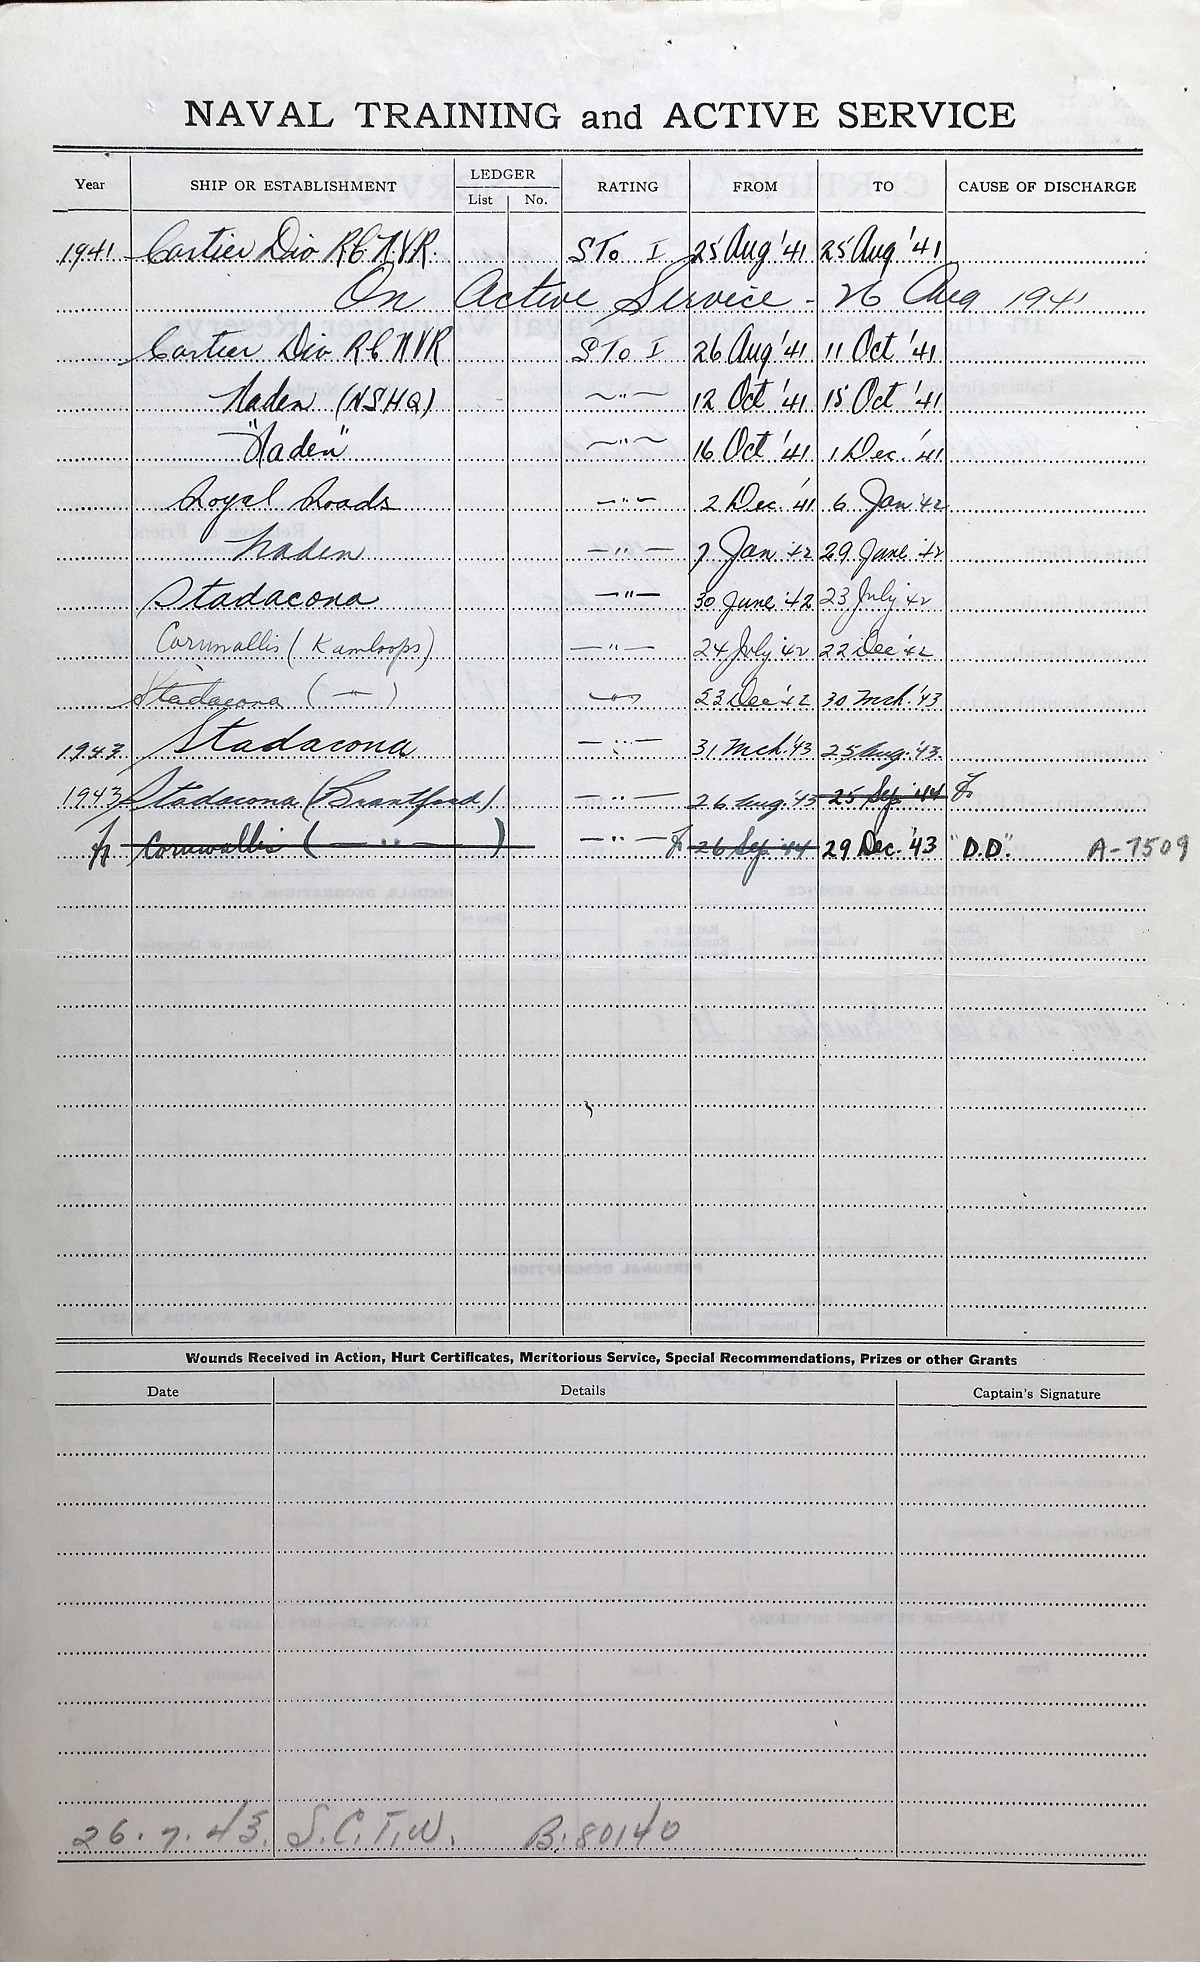 NAVAL TRAINING and ACTIVE SERVICE
Year SHIP OR ESTABLISHMENT LEDGER List No. RATING FROM TO CAUSE OF DISCHARGE
1941 Cartier Div R.C.N.V.R. STo I 25 Aug '41 25 Aug '41
On Active Service - 26 Aug 1941
Cartier Div RCNVR STo I 26 Aug '41 11 Oct '41
Naden (NSHQ) —"— 12 Oct '41 15 Oct '41
"Naden" —"— 16 Oct '41 1 Dec. '41
Royal Roads —"— 2 Dec. '41 6 Jan '42
Naden —"— 7 Jan '42 29 June '42
Stadacona —"— 30 June '42 23 July '42
Cornwallis (Kamloops) —"— 24 July '42 22 Dec '42
Stadacona (—"—) —"— 23 Dec '42 30 Mch. '43
1943 Stadacona —"— 31 Mch. '43 25 Aug. '43
1943 Stadacona (Brantford) —"— 26 Aug. '43 25 Sep. '44
Cornwallis (—"—) —"— 26 Sep. '44 29 Dec. '43 "D.D." A-7509
Wounds Received in Action, Hurt Certificates, Meritorious Service, Special Recommendations, Prizes or other Grants
Date Details Captain's Signature
26.7.43. S.C.T.W. B.80140